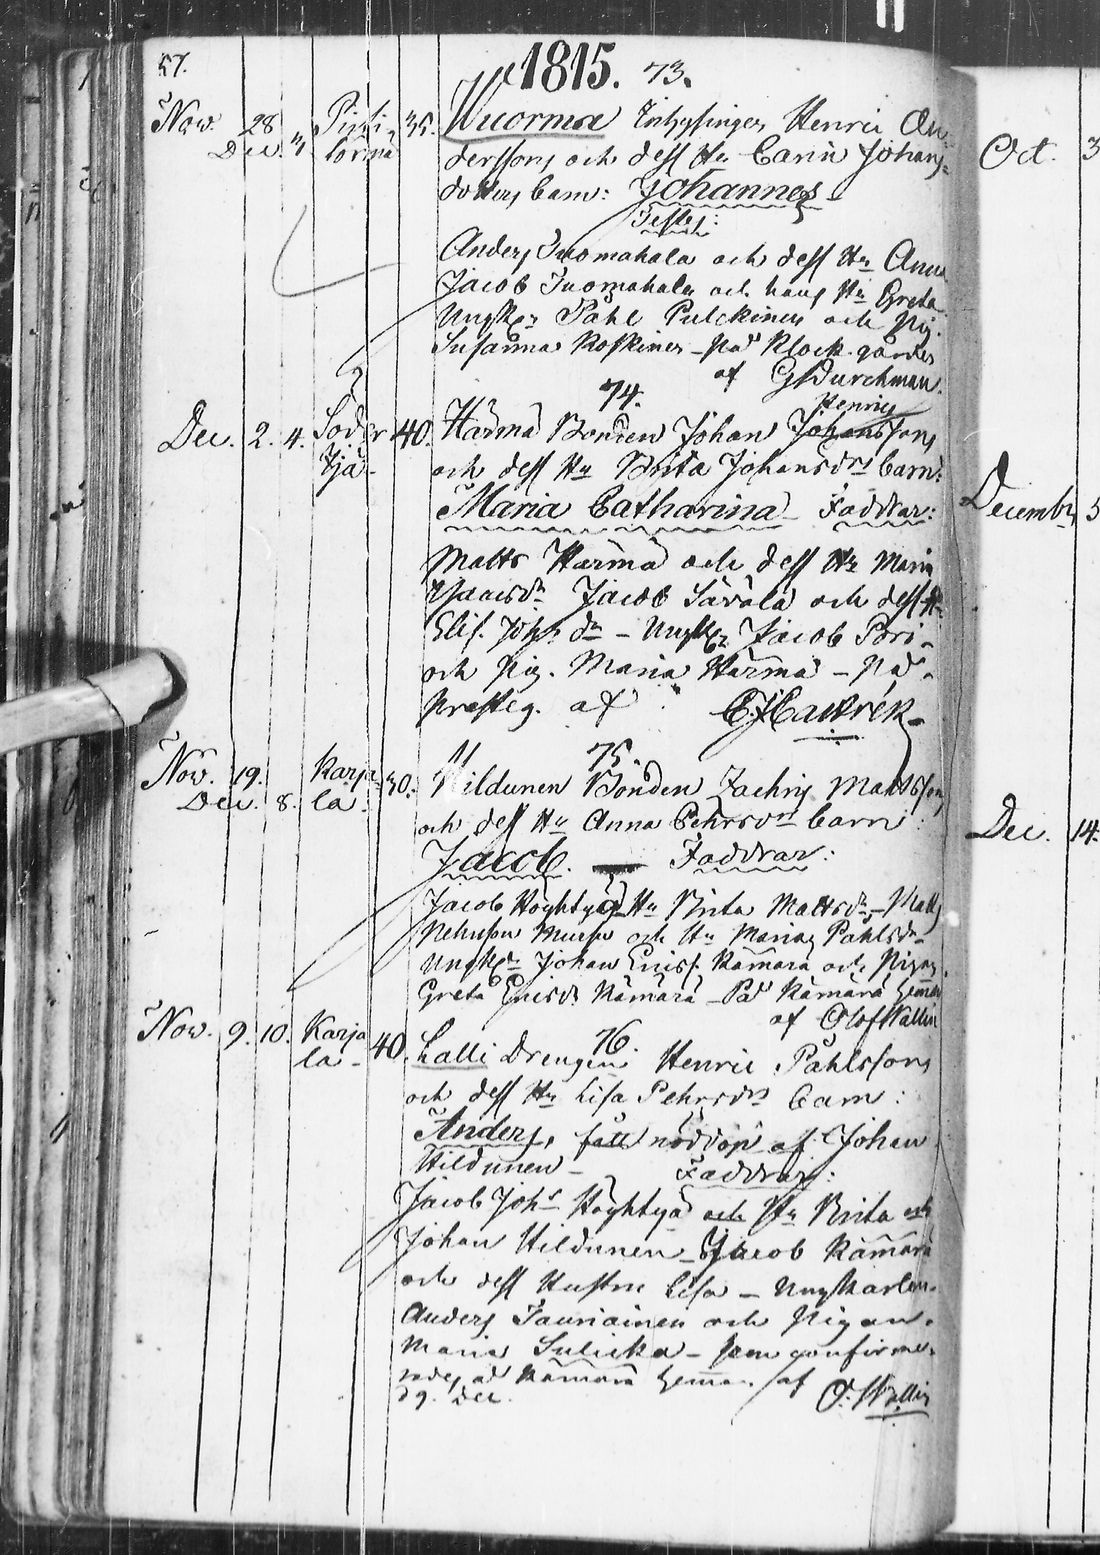 57.
1815. 73.
Nov. 28 Pirti 35. Wuorma Inhysingen Henric An
Dec. 3 lorma derssons och dess Hu Carin Johans
dotters barn: Johannes
Testes:
Anders Tuomahala och dess Hu Anna
Jacob Tuomahala och hans Hu Greta
Ungk. Påhl Pulckinen och Pig.
Susanna Koskinen på Klock. gården
af G Durchman.
74. Henrics
Dec. 2. 4. Söder 40. Härmä Bonden Johan Johanssons
tjä och dess Hu Brita Johansdrs barn:
Maria Catharina Faddrar:
Matts Härmä och dess Hu Maria
Isaacsdr Jacob Säválá och dess Hu
Elis. Johs. dr - Ungk. Jacob Pori
och Pig. Maria Härmä - på
Prösteg. af
75.
Nov. 19. Karja 30. Hildunen Bonden Zachris Mattssons
Dec. 8. la. och dess Hu Anna Pehrsdrs barn
Jacob. Faddrar:
Jacob Höyhtyä Hu Brita Mattsdr - Matts
och Hu Maria Påhlsdr
Ungk. Johan Erics. Kämärä och Pigan
Greta Ericsdr Kämärä - På Kämärä hemman
af Olof Wallin
76.
Nov. 9. 10. Karja 40. Lalli Drengen Henric Påhlssons
la. och dess Hu Lisa Pehrsdrs barn:
Anders, fått nöddop af Johan
Hildunen - Faddrar:
Jacob Johs Höyhtyä och Hu Brita och
Johan Hildunen - Jacob Kämärä
och dess Hustru Lisa - Ungkarlen
Anders Tauriainen och Pigan
Maria Sulicka - som confirme
rades på Kämärä hemman af
d 9. Dec. O. Wallin
Oct. 3
Decembr 5
Dec. 14.